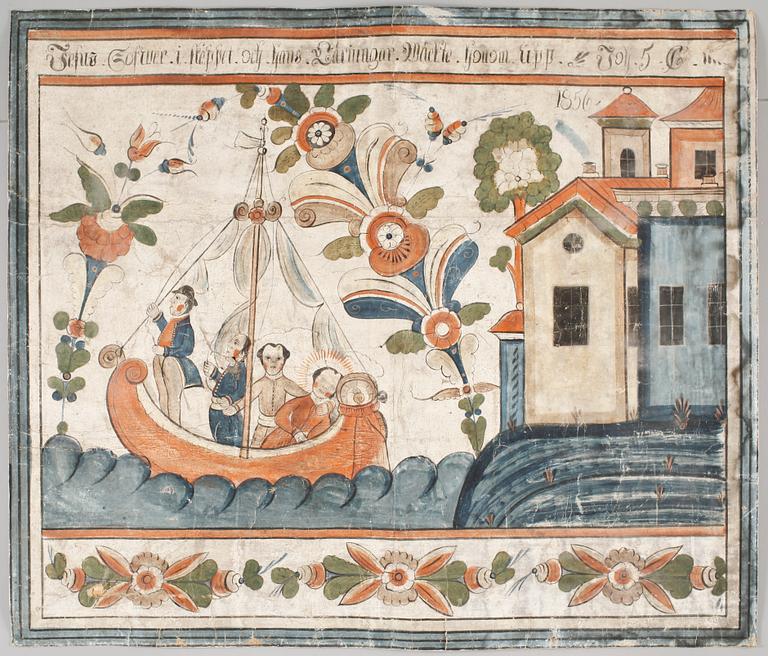 Jesus Sofwer. i. skeppet. och hans. Läriungar. Wäckte. honom. upp. Joh. 5. C.
1856.